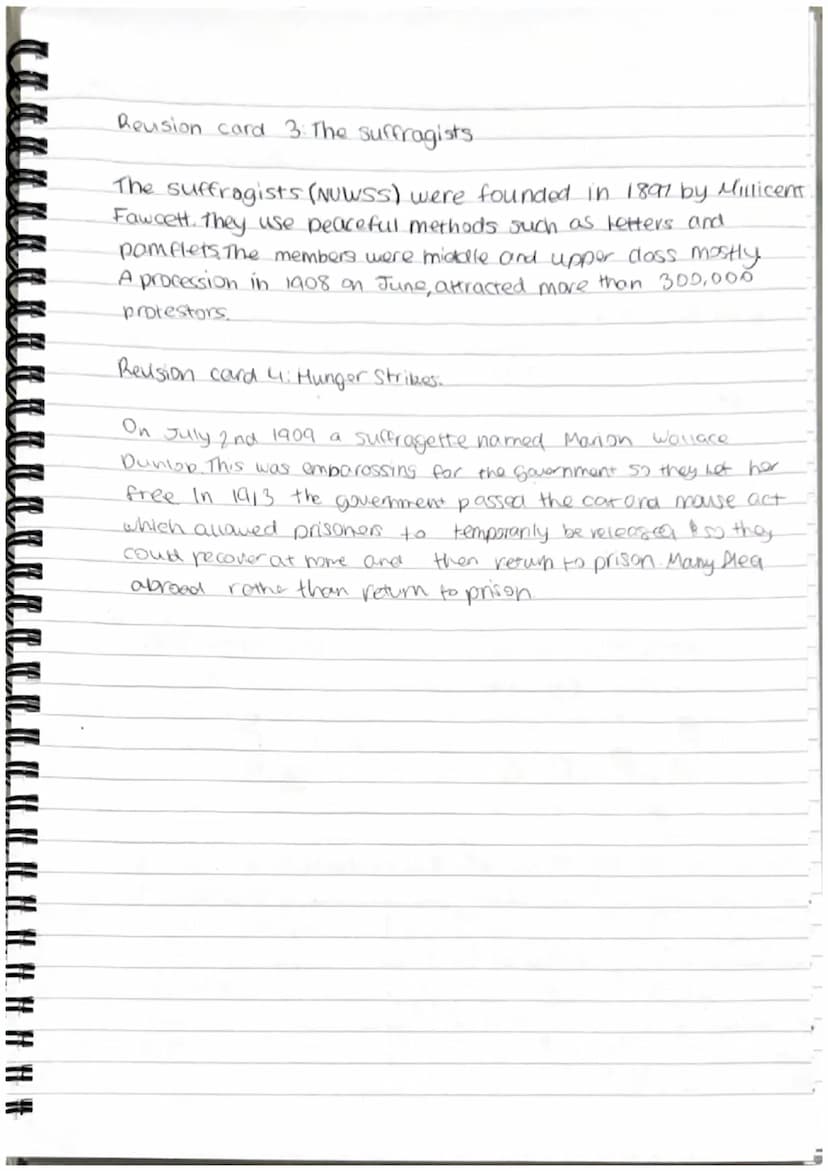 Revision card 3: The suffragists
The suffragists (NUWSS) were founded in 1897 by Millicent
Fawcett. They use peaceful methods such as letters and
pamflets. The members were middle and upper class mostly.
A procession in 1908 on June, attracted more than 300,000
protestors.
Revision card 4: Hunger Strikes.
On July 2nd 1909 a suffragette named Marion Wallace
Dunlop. This was embarossing for the government so they let her
free In 1913 the government passed the cat and mouse act
which allowed prisoners to temporarily be released so they
could recover at home and then return to prison. Many flea
abroad rathe than return to prison